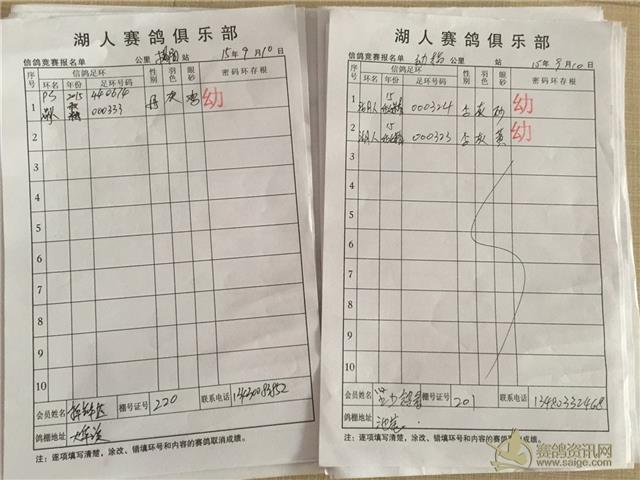 湖人赛鸽俱乐部
信鸽竞赛报名单 公里 站 15年9月10日
序号 信鸽足环 性别 羽色 眼砂 密码环存根
环名 年份 足环号码
1 PS 2015 440674 灰 幼
000333
2
3
4
5
6
7
8
9
10
会员姓名 棚号证号 220 联系电话
鸽棚地址
注：逐项填写清楚，涂改、错填环号和内容的赛鸽取消成绩。
湖人赛鸽俱乐部
信鸽竞赛报名单 幼鸽 公里 站 15年9月10日
序号 信鸽足环 性别 羽色 眼砂 密码环存根
环名 年份 足环号码
1 湖人 15 000324 灰 砂 幼
2 湖人 15 000323 灰 黄 幼
3
4
5
6
7
8
9
10
会员姓名 棚号证号 201 联系电话 13480332468
鸽棚地址
注：逐项填写清楚，涂改、错填环号和内容的赛鸽取消成绩。
赛鸽资讯网
www.saige.com